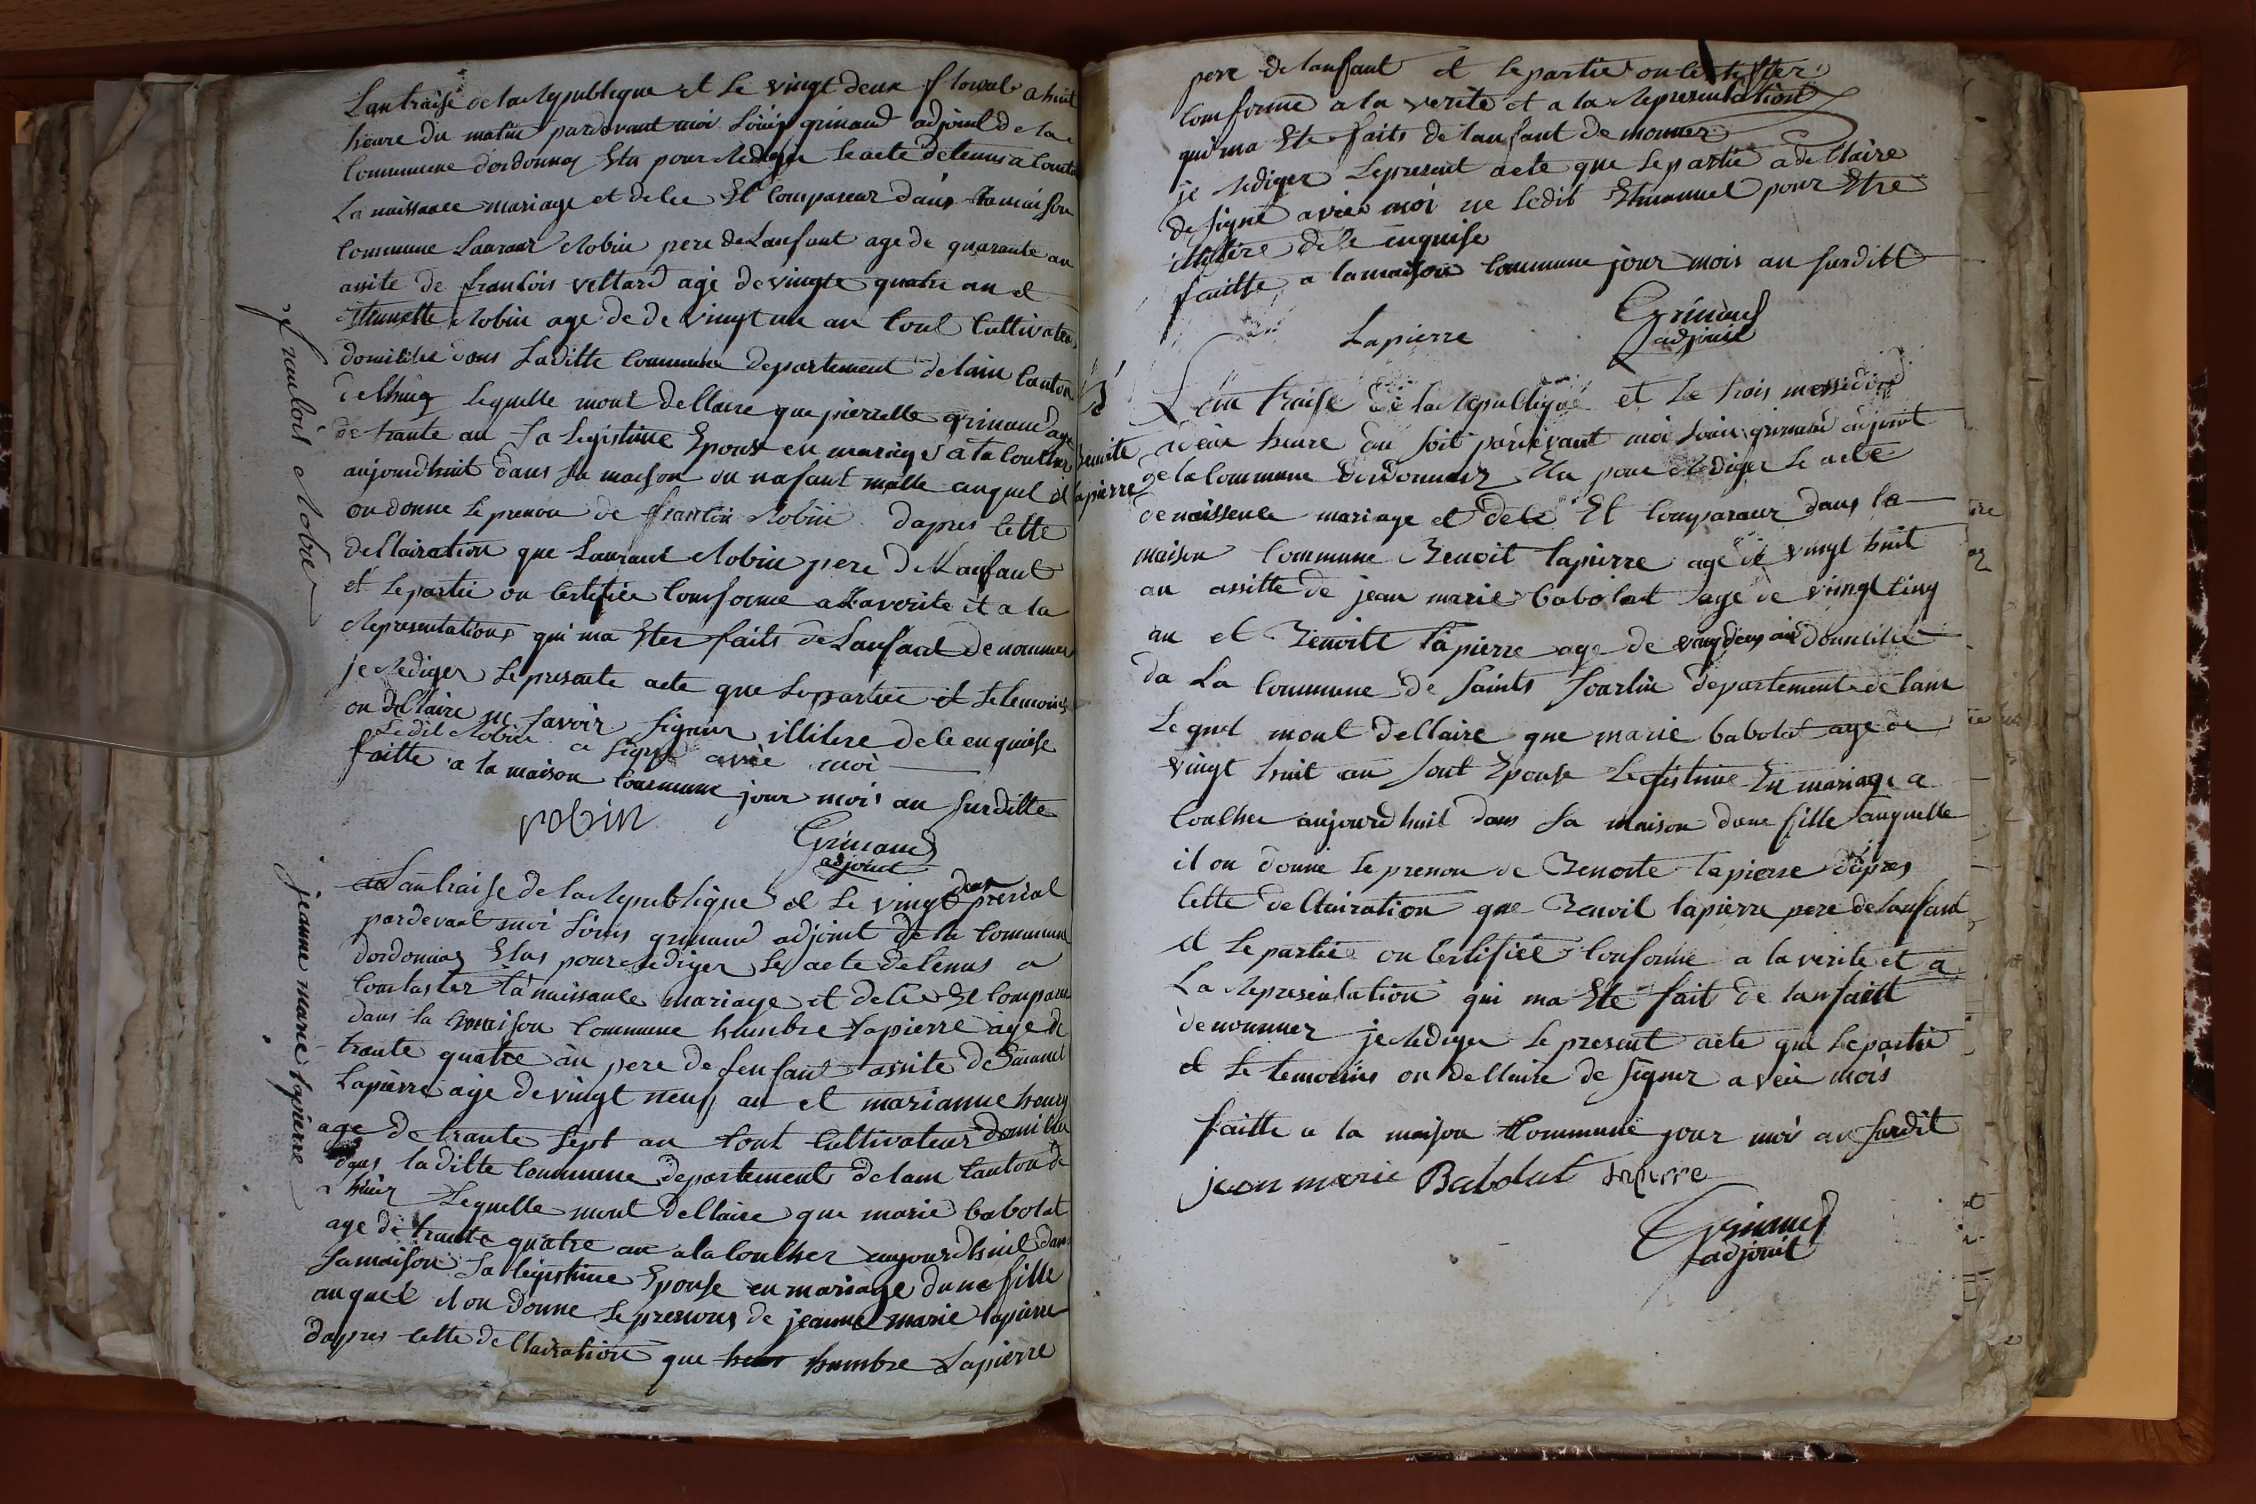 Lan traise de la Republique et Le vingt deux floreal a huit
heure du matin pardevant moi Louis grinand adjoint de la
Commune dordonnas Elu pour Rediger Le acte detenus a Conta
La naissance mariage et dece Et Compareur dans la maison
Commune Laurant Robin pere de Lanfant age de quarante an
assite de francois vettard agé de vingte quatre an et
Robin age de de vingt un an tout Cultivateur
domicilié dans Laditte Commune departement delain Canton
de lhuis Lequelle mont dellaire que pierrette grinand age
de trante an Sa Legistime Epouse en mariage a ta Coucher
aujourdhuit dans Sa maison on nafant malle auquel il
on donne Le prenon de Robin dapres Cette
dellairation que Laurant Robin pere de Lanfant
et Le partie on Certifiée Comforme a Laverite et a la
Representations qui ma Eter faits de Lanfant denommer
je Rediger Le presente acte que Le partie et Le temoins
on dellaire ne Savoir Signer illitere dele enquise
Ledit Robin a Signe avec moi
faitte a la maison Commune jour mois an Surditte
robin
Grinand
adjoint
francois Robin
Lan traise de la Republique et Le vingt deux prerial
pardevant moi Louis grinand adjoint de la Commune
dordonnas Elus pour Rediger Le acte detenus a
Contaster la naissance mariage et dece Et Comparu
dans la maison Commune humbre Lapierre age de
trante quatre an pere de Lenfant assite de Emanuel
Lapierre age de vingt neuf an et marianne
age de trante Sept an tout Cultivateur domicilie
dans laditte Commune departement delain Canton de
lhuis Lequelle mont dellaire que marie babolat
age de trante quatre an a la Coucher aujourdhuit dans
Sa maison Sa legistime Epouse en mariage dune fille
auquel il on donne Le prenons de jeanne marie lapierre
dapres Cette dellairation que humbre Lapierre
jeanne marie lapierre
pere de lanfant et Le partie on Certifier
Comforme a la verite et a la Representation
qui ma Ete faits de lanfant denommer
je Rediger Lepresent acte que Le partie a dellaire
de Signé avec moi ne Ledit Emanuel pour Etre
illitére dele enquise
faitte a la maison Commune jour mois an Surditt
Lapierre
Grinand
adjoint
benoite
lapierre
Lan traise de la Republique et Le trois messidor
a heure du Soit pardevant moi Louis grinand adjoint
de la Commune dordonnas Elu pour Rediger Le acte
de naissence mariage et dece Et Comparaur dans la
maison Commune Benoit lapierre age de vingt huit
an assitte de jean marie babolat age de vingt Cinq
an et Benoite lapierre age de an domicilié
da La Commune de Saints Sourlin departement delain
Lequel mont dellaire que marie babolat age de
vingt huit an Sont Epouse Legistime En mariage a
Coucher aujourdhuit dans Sa maison dune fille auquelle
il on donne Le prenon de Benoite lapierre dapres
Cette dellairation que Benoit lapierre pere de lanfant
et Le partie on Certifiée Conforme a la verite et a
La Representation qui ma Ete fait de lanfantt
denommer je Rediger Le present acte que Le partie
et Le temoins on dellaire de Signer avec mois
faitte a la maison Commune jour mois an Surdit
jean marie Babolat lapierre
Grinand
adjoint